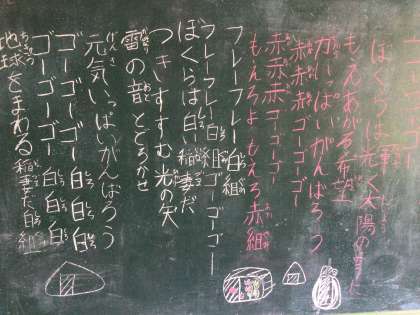 ぼくらは輝く太陽のように
もえあがる希望
力いっぱいがんばろう
赤赤赤ゴーゴーゴー
赤赤赤ゴーゴーゴー
もえろよもえろ赤組
フレーフレー白組
フレーフレー白組 ゴーゴー
ぼくらは白い稲妻だ
つきすすむ光の矢
雷の音 とどろかせ
元気いっぱいがんばろう
ゴーゴーゴー 白白白
ゴーゴーゴー 白白白
地球をまわる稲妻だ白組